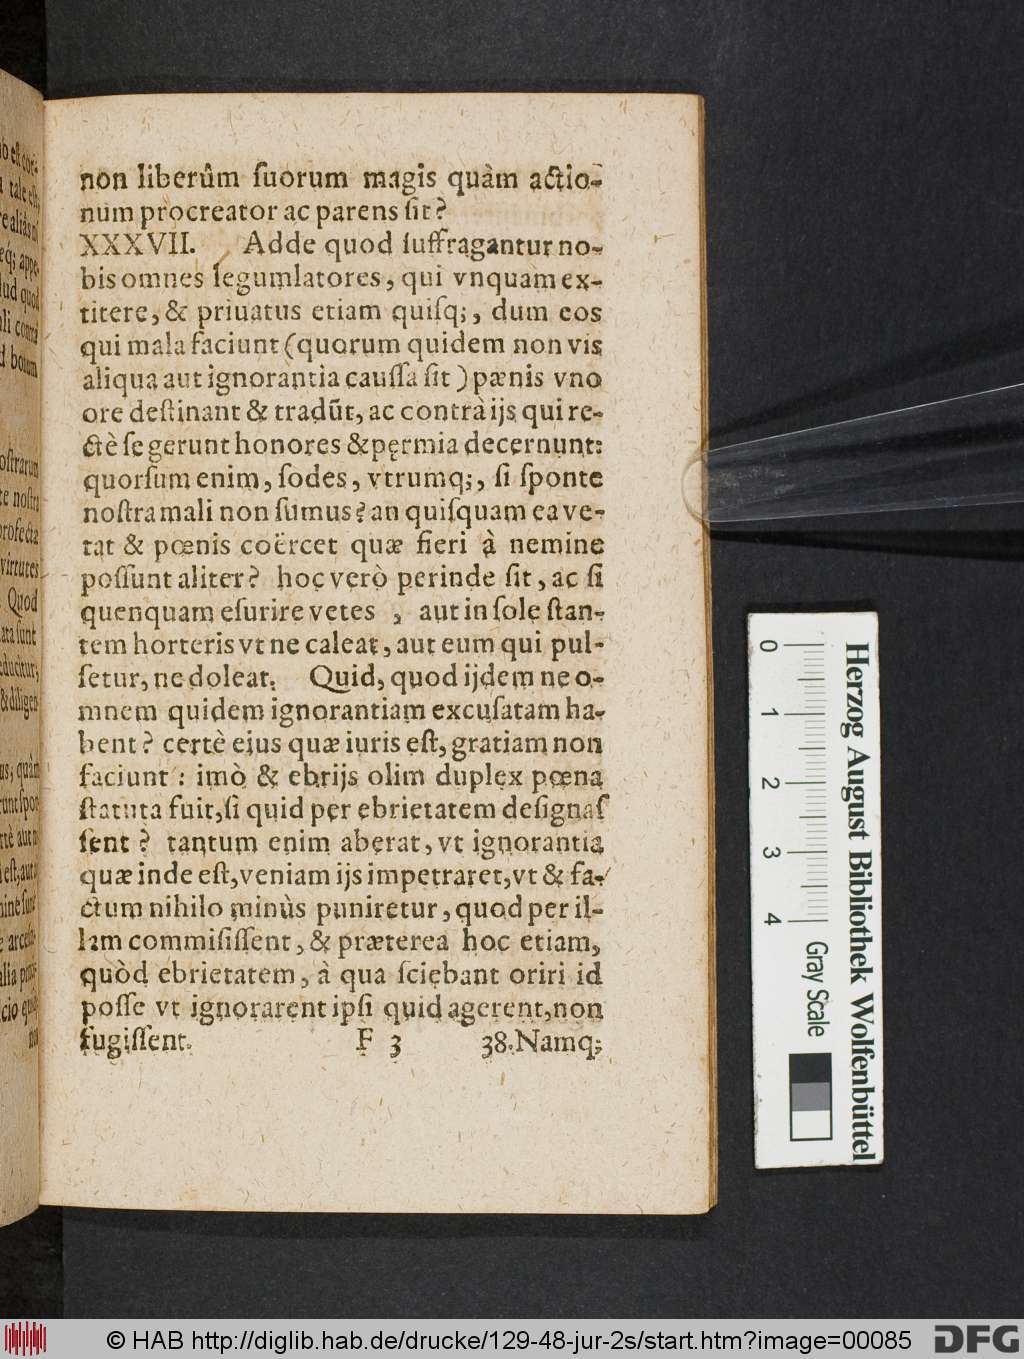 non liberûm ſuorum magis quàm actio-
num procreator ac parens ſit?
XXXVII. Adde quod ſuffragantur no-
bis omnes legumlatores, qui vnquam ex-
titere, & priuatus etiam quiſq;, dum eos
qui mala faciunt (quorum quidem non vis
aliqua aut ignorantia cauſſa ſit) pænis vno
ore deſtinant & tradūt, ac contrà ijs qui re-
ctè ſe gerunt honores & pęrmia decernunt:
quorſum enim, ſodes, vtrumq;, ſi ſponte
noſtra mali non ſumus? an quiſquam ea ve-
tat & pœnis coërcet quæ fieri à nemine
poſſunt aliter? hoc verò perinde ſit, ac ſi
quenquam eſurire vetes, aut in ſole ſtan-
tem horteris vt ne caleat, aut eum qui pul-
ſetur, ne doleat. Quid, quod ijdem ne o-
mnem quidem ignorantiam excuſatam ha-
bent? certè ejus quæ iuris eſt, gratiam non
faciunt: imò & ebrijs olim duplex pœna
ſtatuta fuit, ſi quid per ebrietatem deſignaſ
ſent? tantum enim aberat, vt ignorantia
quæ inde eſt, veniam ijs impetraret, vt & fa-
ctum nihilo minùs puniretur, quod per il-
lam commiſiſſent, & præterea hoc etiam,
quòd ebrietatem, à qua ſciebant oriri id
poſſe vt ignorarent ipſi quid agerent, non
fugiſſent. F 3 38. Namq;
0 1 2 3 4
Gray Scale
Herzog August Bibliothek Wolfenbüttel
© HAB http://diglib.hab.de/drucke/129-48-jur-2s/start.htm?image=00085
DFG